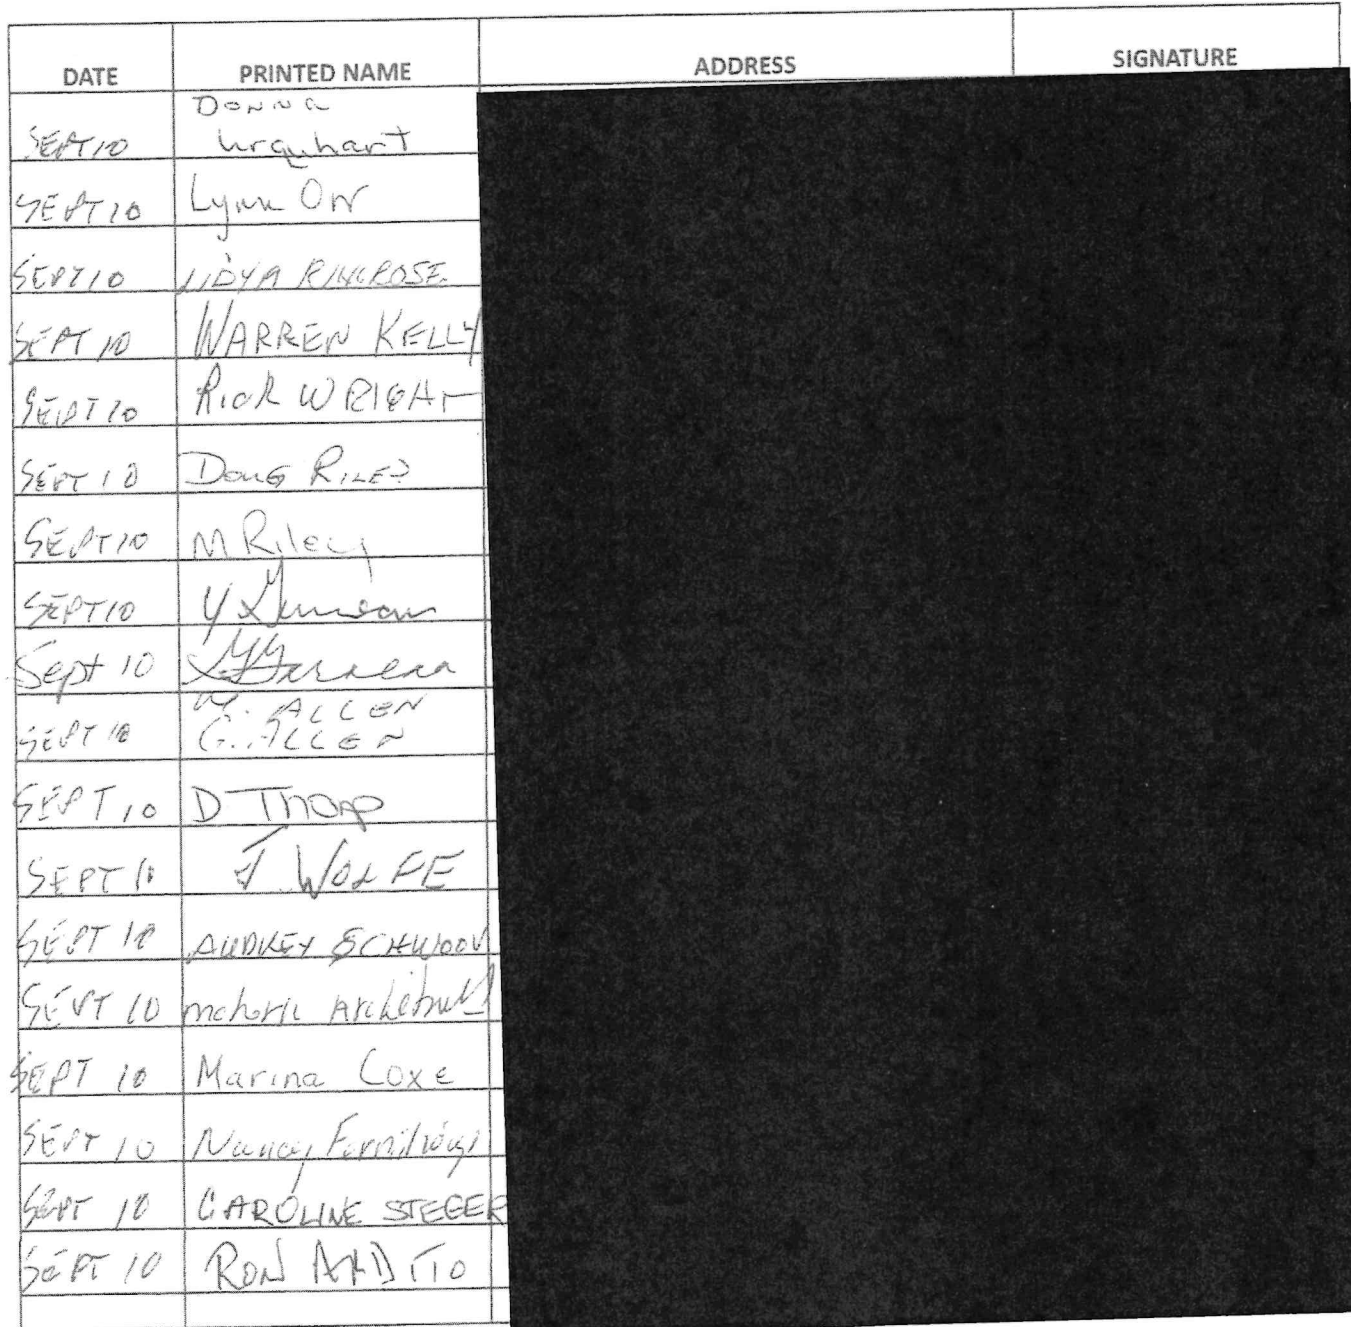 DATE PRINTED NAME ADDRESS SIGNATURE
Donna
SEPT 10 Urquhart
SEPT 10 Lynn Orr
SEPT 10 LIDYA RINGROSE
SEPT 10 WARREN KELLY
SEPT 10 Rick WRIGHT
SEPT 10 Doug RILEY
SEPT 10 M Riley
SEPT 10 Y Duncan
Sept 10
M. ALLEN
SEPT 10 G. ALLEN
SEPT 10 D Thorp
SEPT 10 J WOLFE
SEPT 10 AUDREY
SEPT 10
SEPT 10 Marina Coxe
SEPT 10 Nancy
SEPT 10 CAROLINE STEGER
SEPT 10 RON